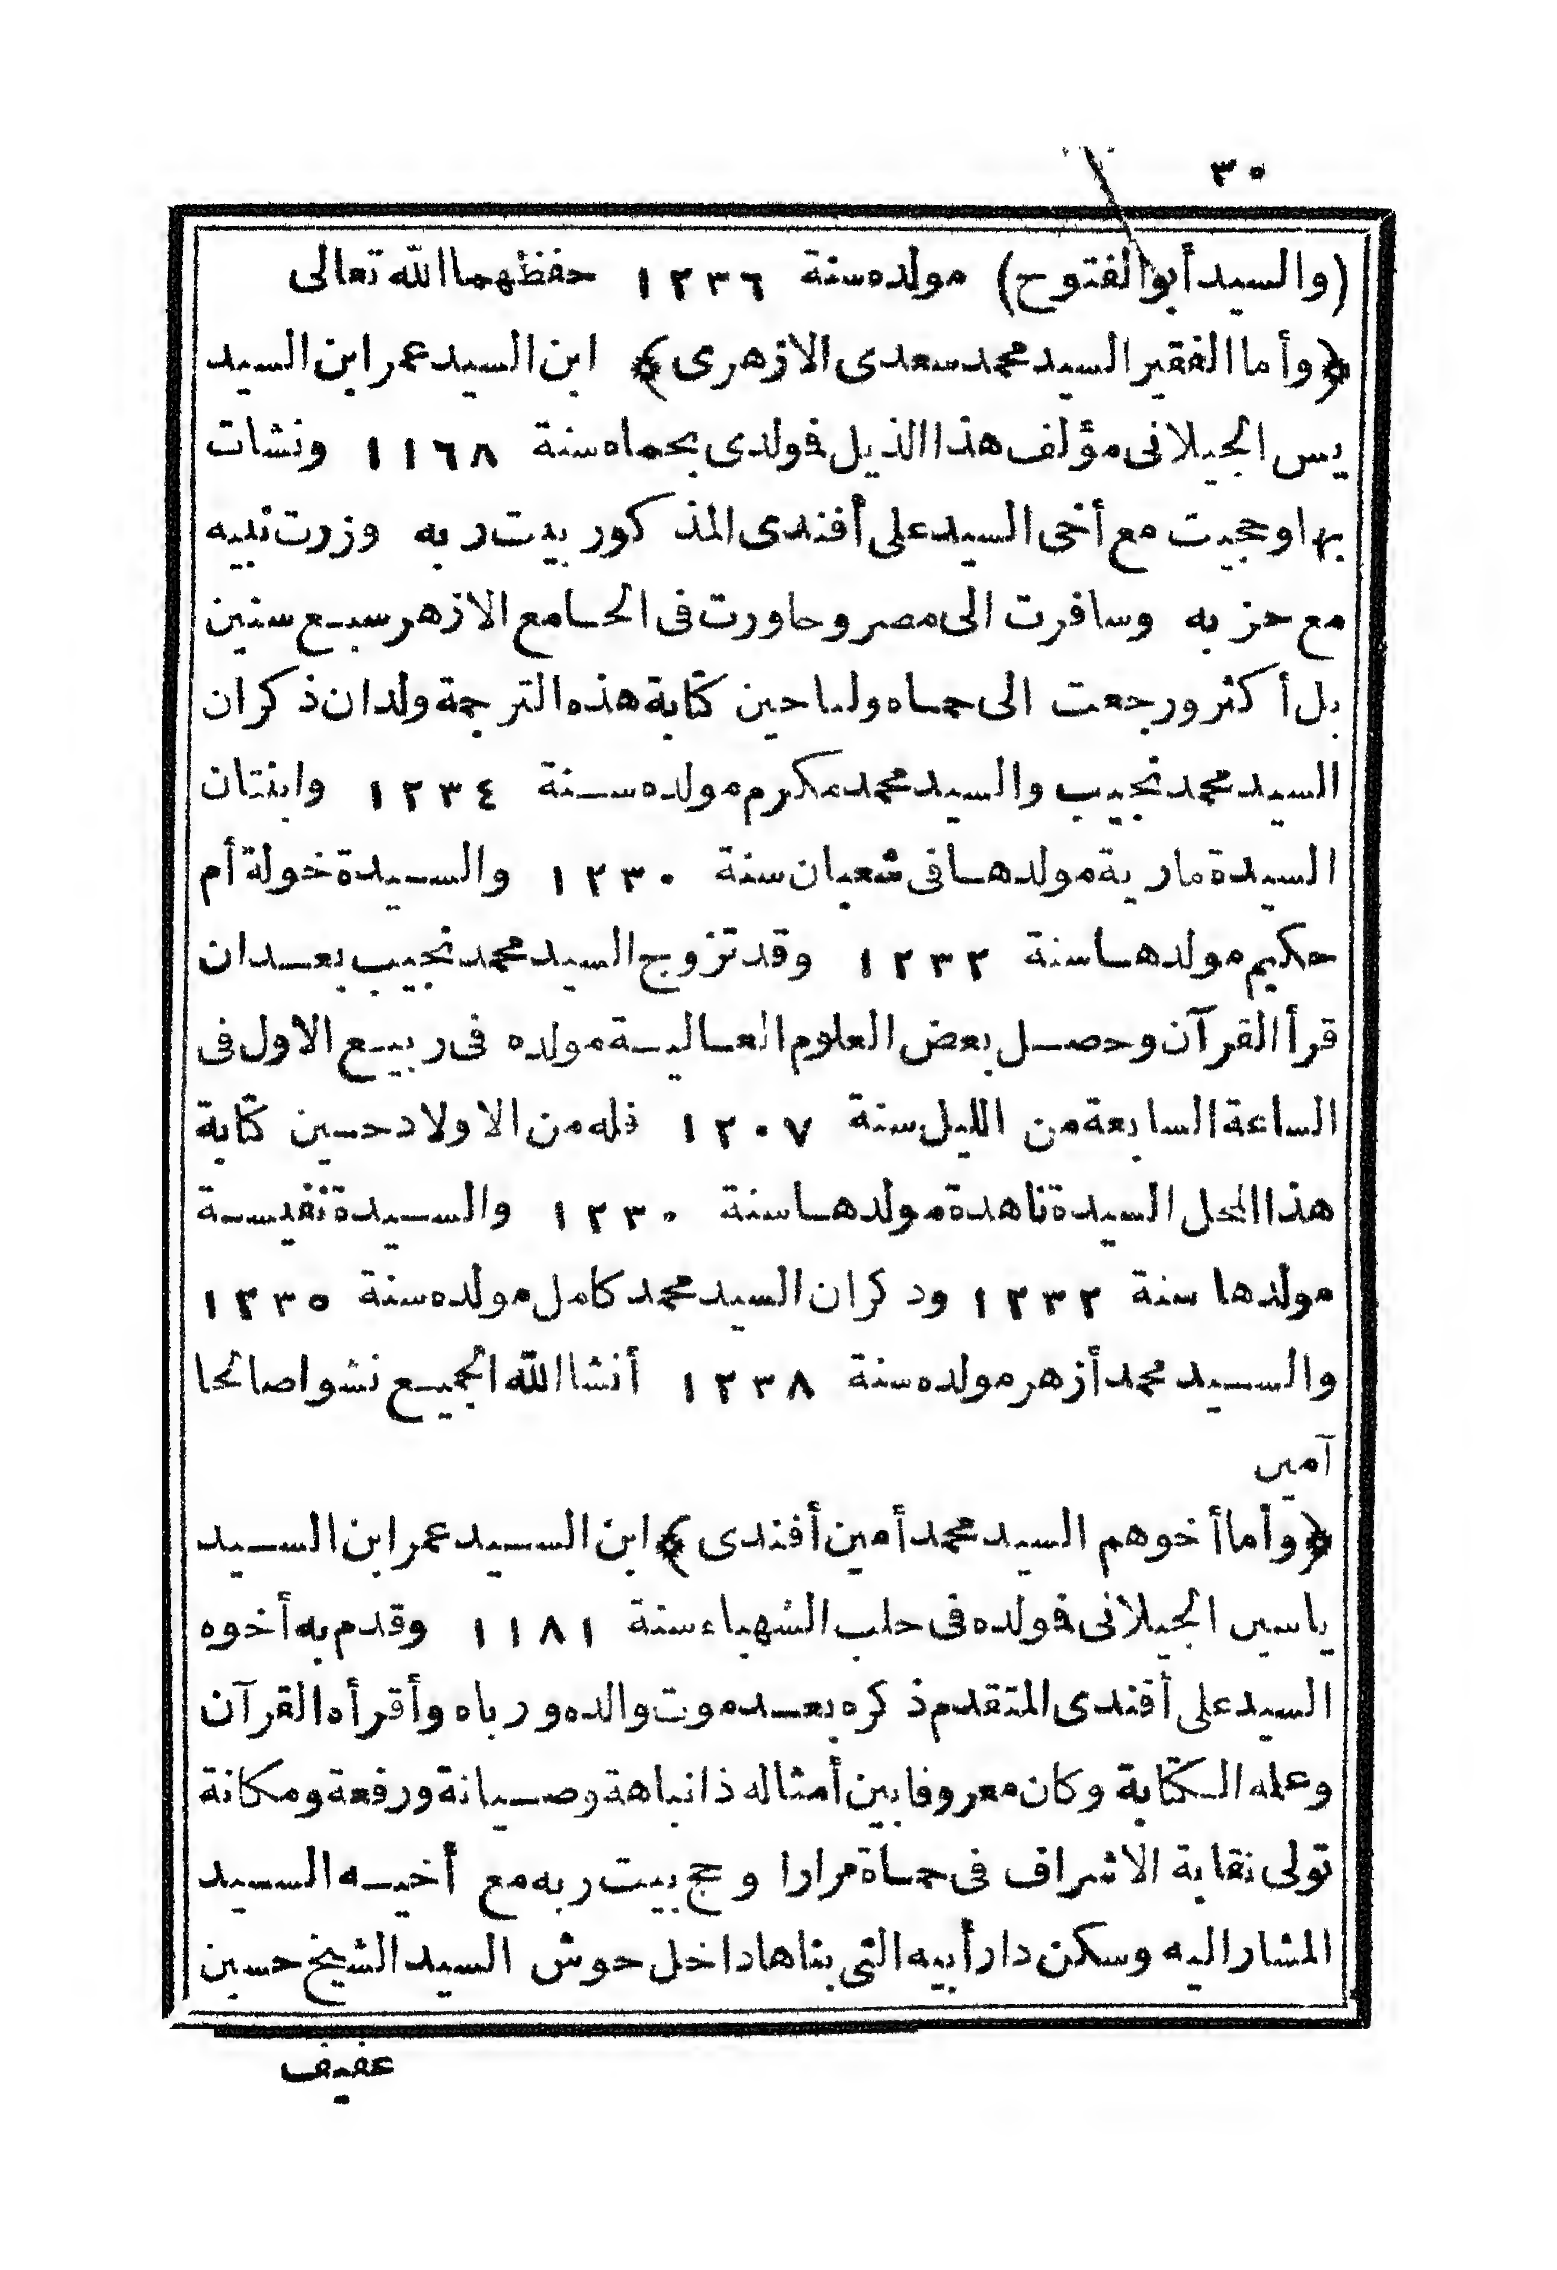 ٣٠
(والسيد أبوالفتوح) مولده سنة ١٢٣٦ حفظهما الله تعالى
﴿وأما الفقير السيد محمد سعدى الازهرى﴾ ابن السيد عمر ابن السيد
يس الجيلانى مؤلف هذا الذيل فولدى بحماه سنة ١١٦٨ ونشات
بها وحجيت مع أخى السيد على أفندى المذكور بيت ربه وزرت نبيه
مع حزبه وسافرت الى مصر وجاورت فى الجامع الازهر سبع سنين
بل أكثر ورجعت الى حماه ولنا حين كتابة هذه الترجمة ولدان ذكران
السيد محمد نجيب والسيد محمد مكرم مولده سنة ١٢٣٤ وابنتان
السيدة مارية مولدها فى شعبان سنة ١٢٣٠ والسيدة خولة أم
حكيم مولدها سنة ١٢٣٢ وقد تزوج السيد محمد نجيب بعد ان
قرأ القرآن وحصل بعض العلوم العالية مولده فى ربيع الاول فى
الساعة السابعة من الليل سنة ١٢٠٧ فله من الاولاد حين كتابة
هذا المحل السيدة ناهدة مولدها سنة ١٢٣٠ والسيدة نفيسة
مولدها سنة ١٢٣٢ وذكران السيد محمد كامل مولده سنة ١٢٣٥
والسيد محمد أزهر مولده سنة ١٢٣٨ أنشا الله الجميع نشوا صالحا
آمين
﴿وأما أخوهم السيد محمد أمين أفندى﴾ ابن السيد عمر ابن السيد
ياسين الجيلانى فولده فى حلب الشهباء سنة ١١٨١ وقدم به أخوه
السيد على أفندى المتقدم ذكره بعد موت والده ورباه وأقرأه القرآن
وعلمه الكتابة وكان معروفا بين أمثاله ذا نباهة وصيانة ورفعة ومكانة
تولى نقابة الاشراف فى حماة مرارا وحج بيت ربه مع أخيه السيد
المشار اليه وسكن دار أبيه التى بناها داخل حوش السيد الشيخ حسين
عفيف